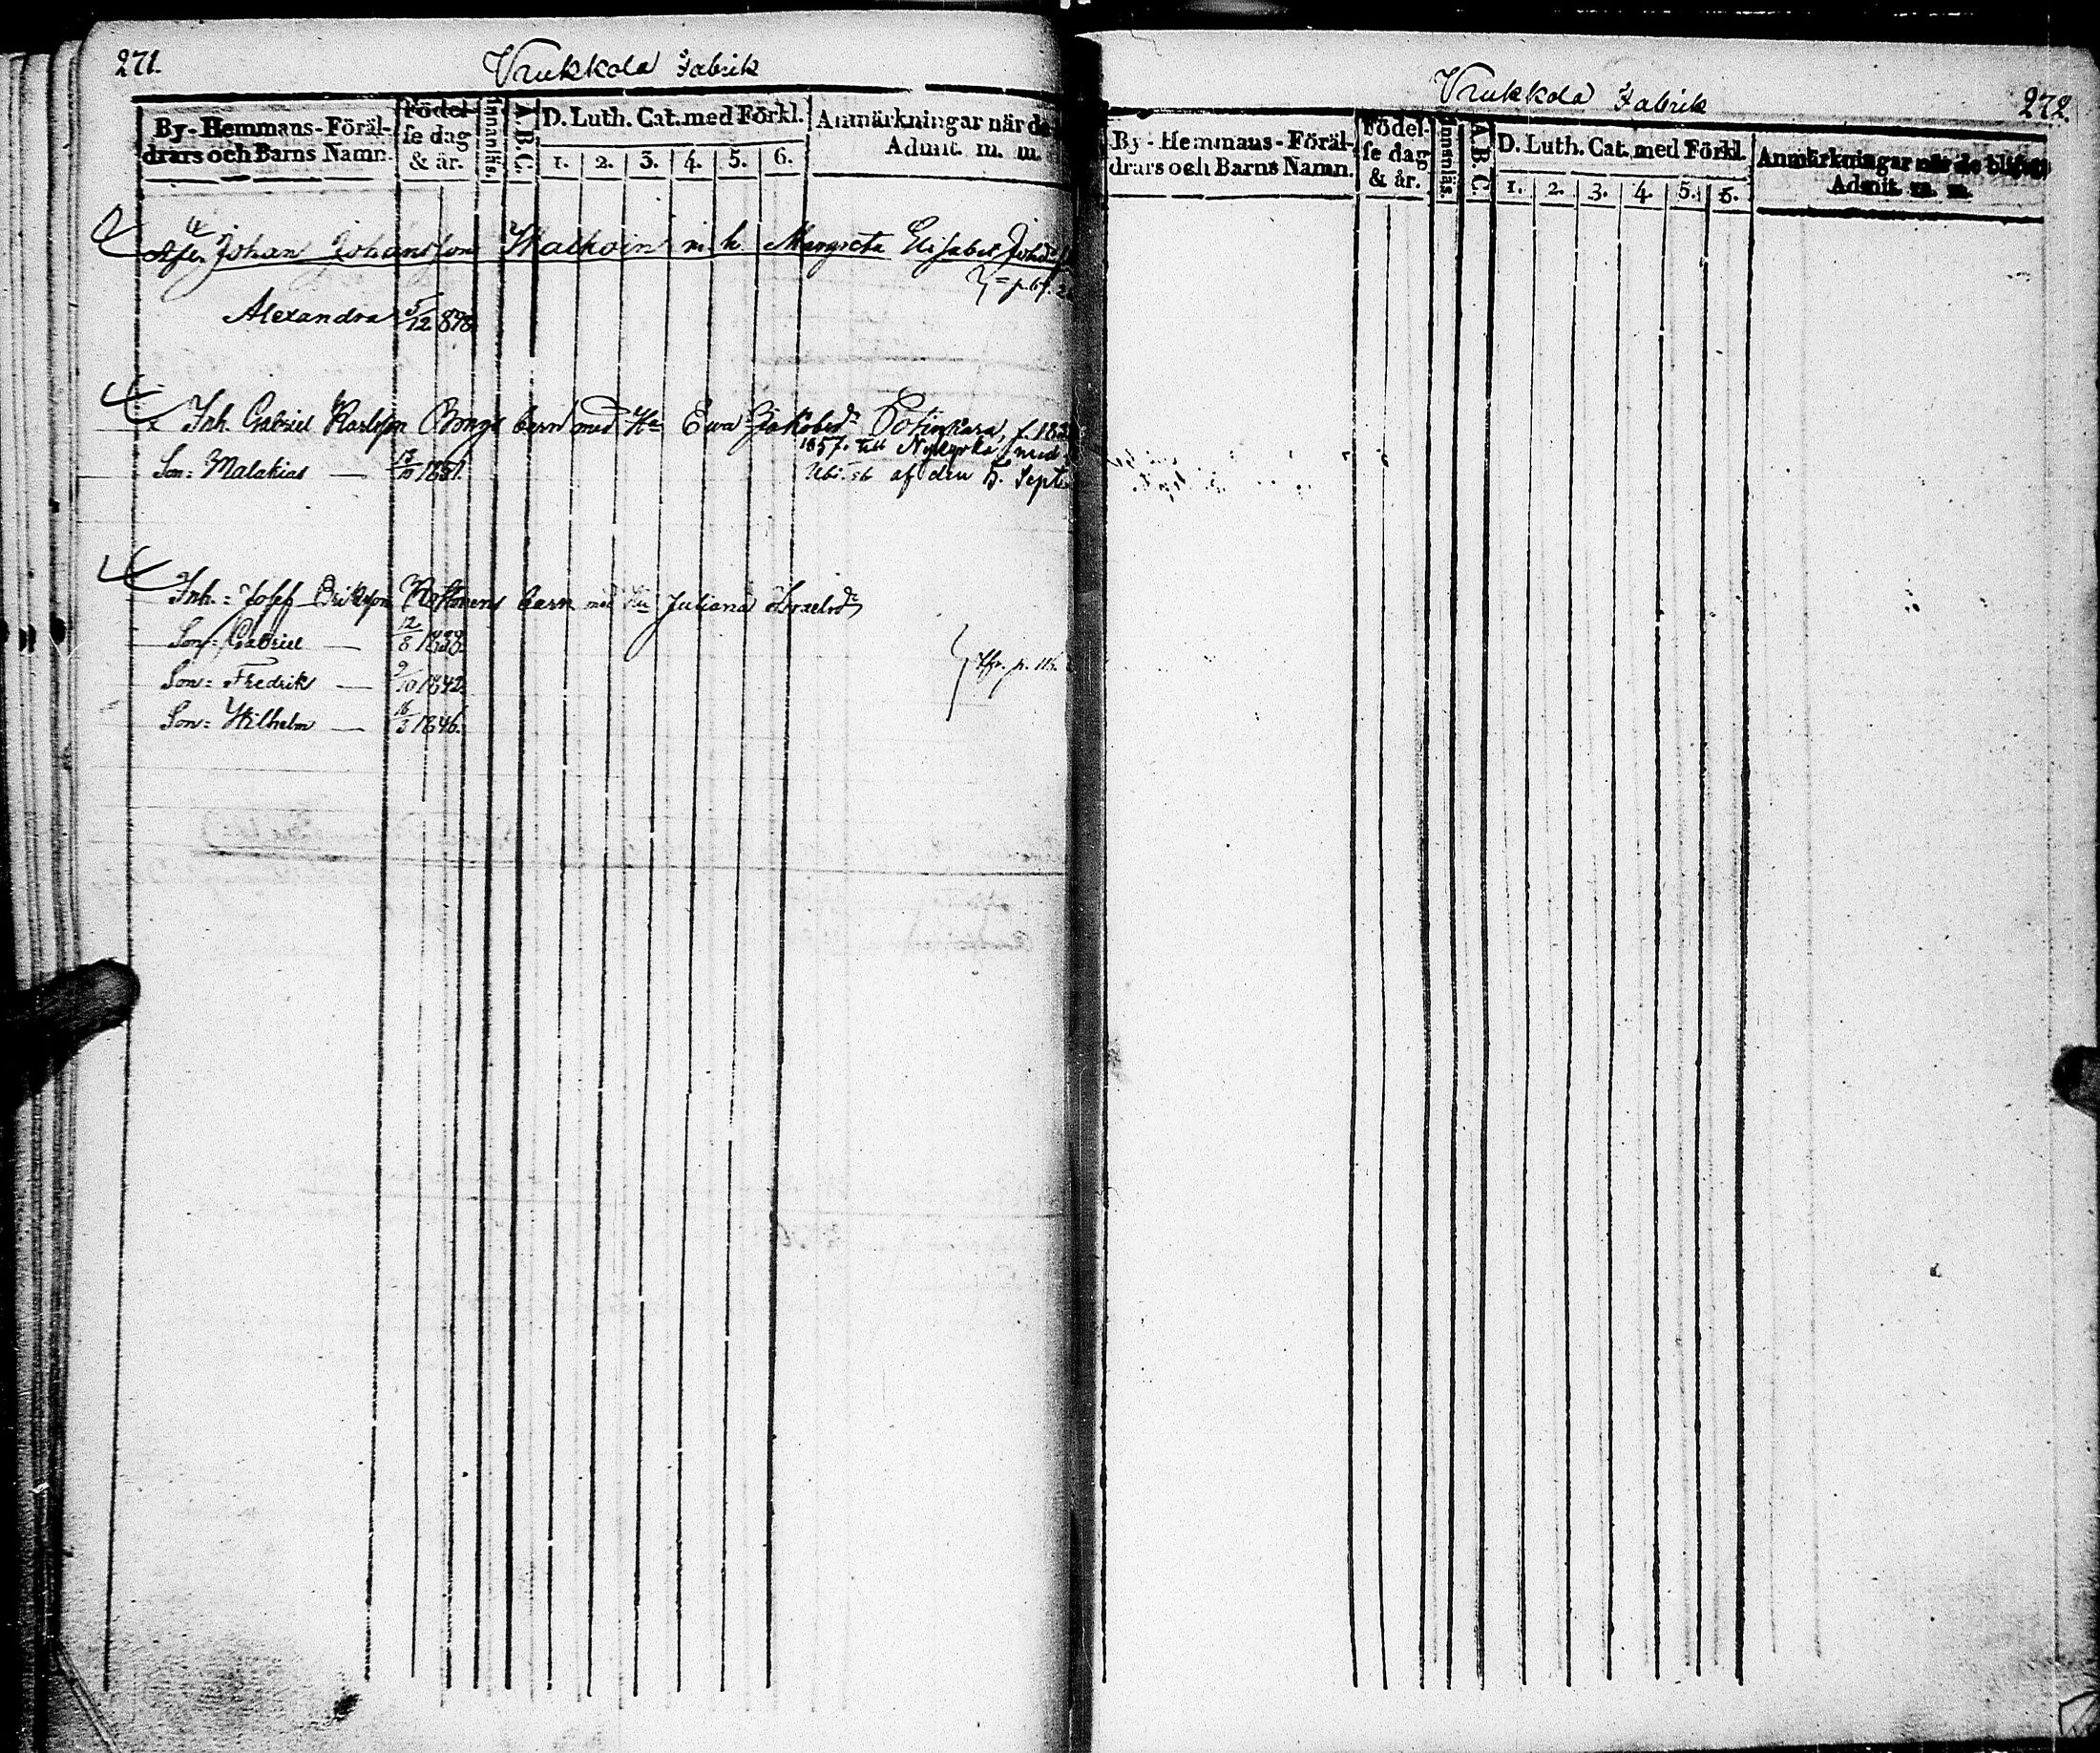 271.
Vrukkola Fabrik
By-Hemmans-Föräl-
drars och Barns Namn.
Födel-
se dag
& år.
Innanläs.
A.B.C.
D. Luth. Cat. med Förkl.
1. 2. 3. 4. 5. 6.
Anmärkningar när de
Admit. m. m.
Johan Johansson m. h. Margreta Elisabet
Alexandra 5/12 878
Inh. Gabriel Karlsson barn med Hu Ewa Jakobsdr f. 183
1857. till Nykyrka med
af den 5. Sept
Son: Malakias — 1851.
Inh.: Josef Eriksson barn med Hu Juliana Israelsdr
Son: Gabriel — 12/8 1838.
Son: Fredrik — 9/10 1842.
Son: Wilhelm — 16/3 1846.
Vrukkola Fabrik
272.
By-Hemmans-Föräl-
drars och Barns Namn.
Födel-
se dag
& år.
Innanläs.
A.B.C.
D. Luth. Cat. med Förkl.
1. 2. 3. 4. 5. 6.
Anmärkningar när de blifvit
Admit. m. m.